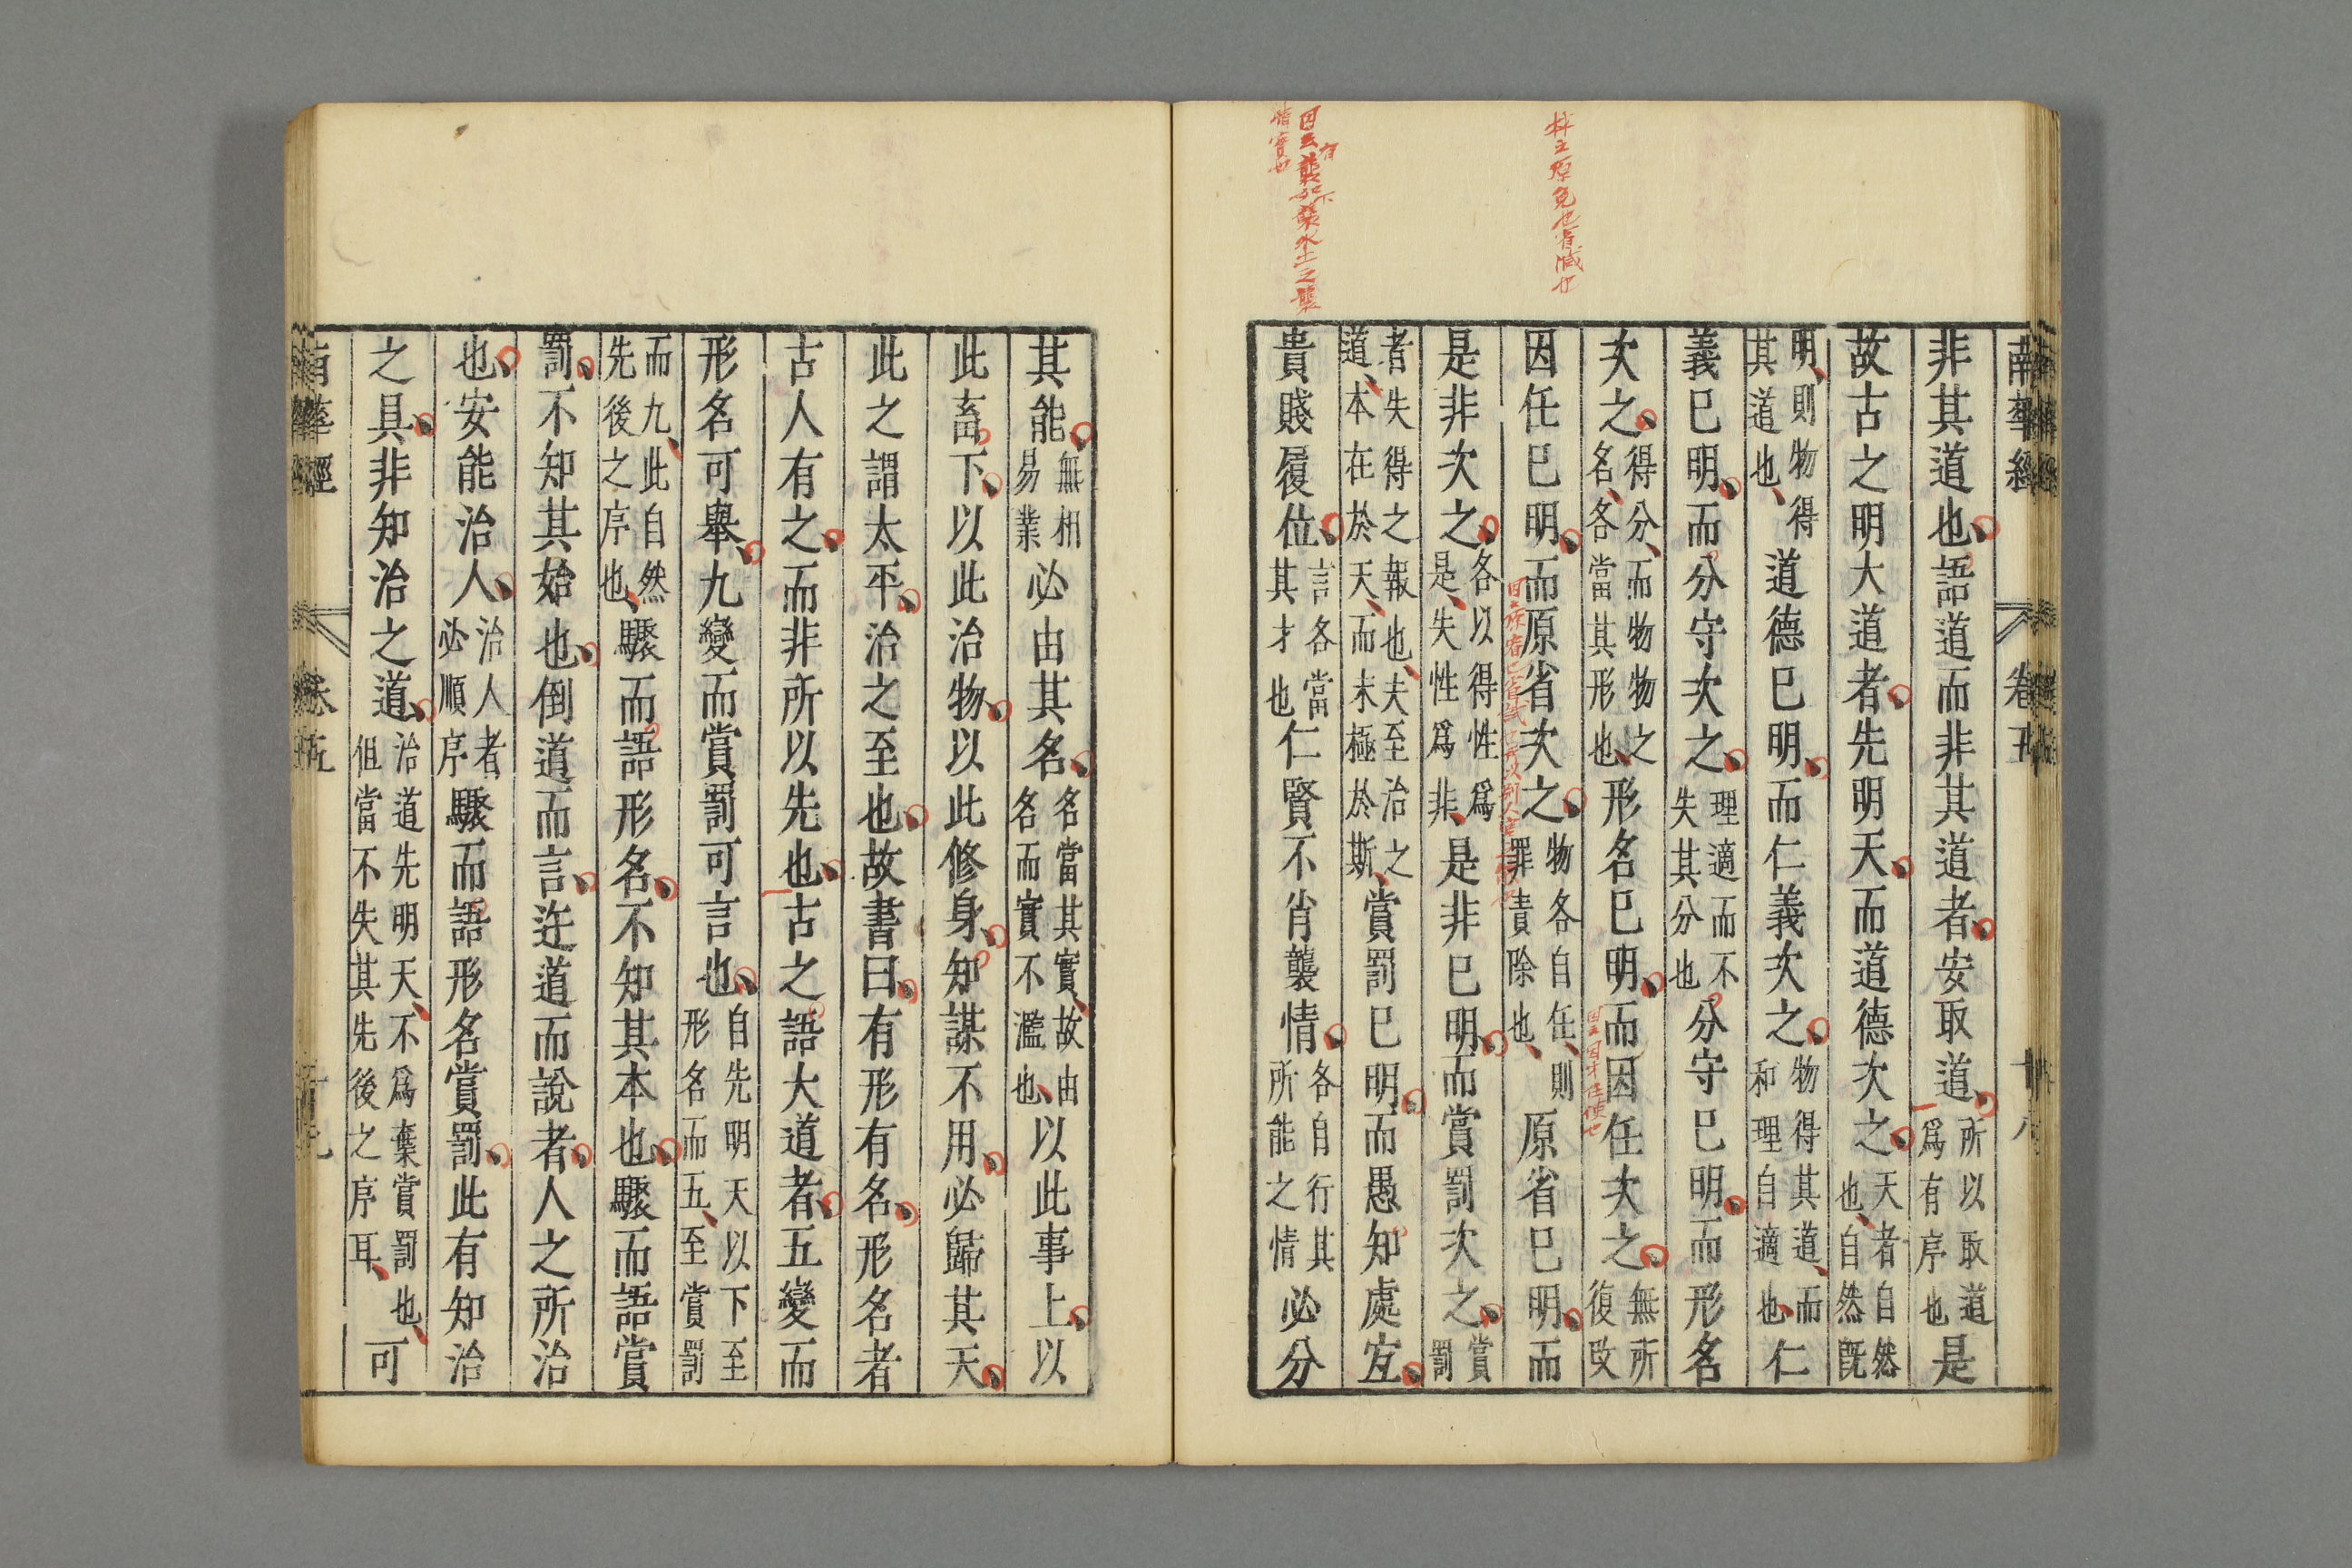 林云原免也省減也
因云襲如下襲水土之襲
情實也
南華經 卷五 十八
非其道也語道而非其道者安取道所以取道爲有序也是
故古之明大道者先明天而道德次之天者自然也自然既
明則物得其道也道德已明而仁義次之物得其道而和理自適也仁
義已明而分守次之理適而不失其分也分守已明而形名
次之得分而物物之名各當其形也形名已明而因任次之無所復改
因任已明而原省次之物各自任則罪責除也原省已明而
是非次之各以得性爲是失性爲非是非已明而賞罰次之賞罰
者失得之報也夫至治之道本在於天而末極於斯賞罰已明而愚知處宜
貴賤履位言各當其才也仁賢不肖襲情各自行其所能之情必分
其能無相易業必由其名名當其實故由名而實不濫也以此事上以
此畜下以此治物以此修身知謀不用必歸其天
此之謂太平治之至也故書曰有形有名形名者
古人有之而非所以先也古之語大道者五變而
形名可舉九變而賞罰可言也自先明天以下至形名而五至賞罰
而九此自然先後之序也驟而語形名不知其本也驟而語賞
罰不知其始也倒道而言迕道而說者人之所治
也安能治人治人者必順序驟而語形名賞罰此有知治
之具非知治之道治道先明天不爲棄賞罰也但當不失其先後之序耳可
南華經 卷五